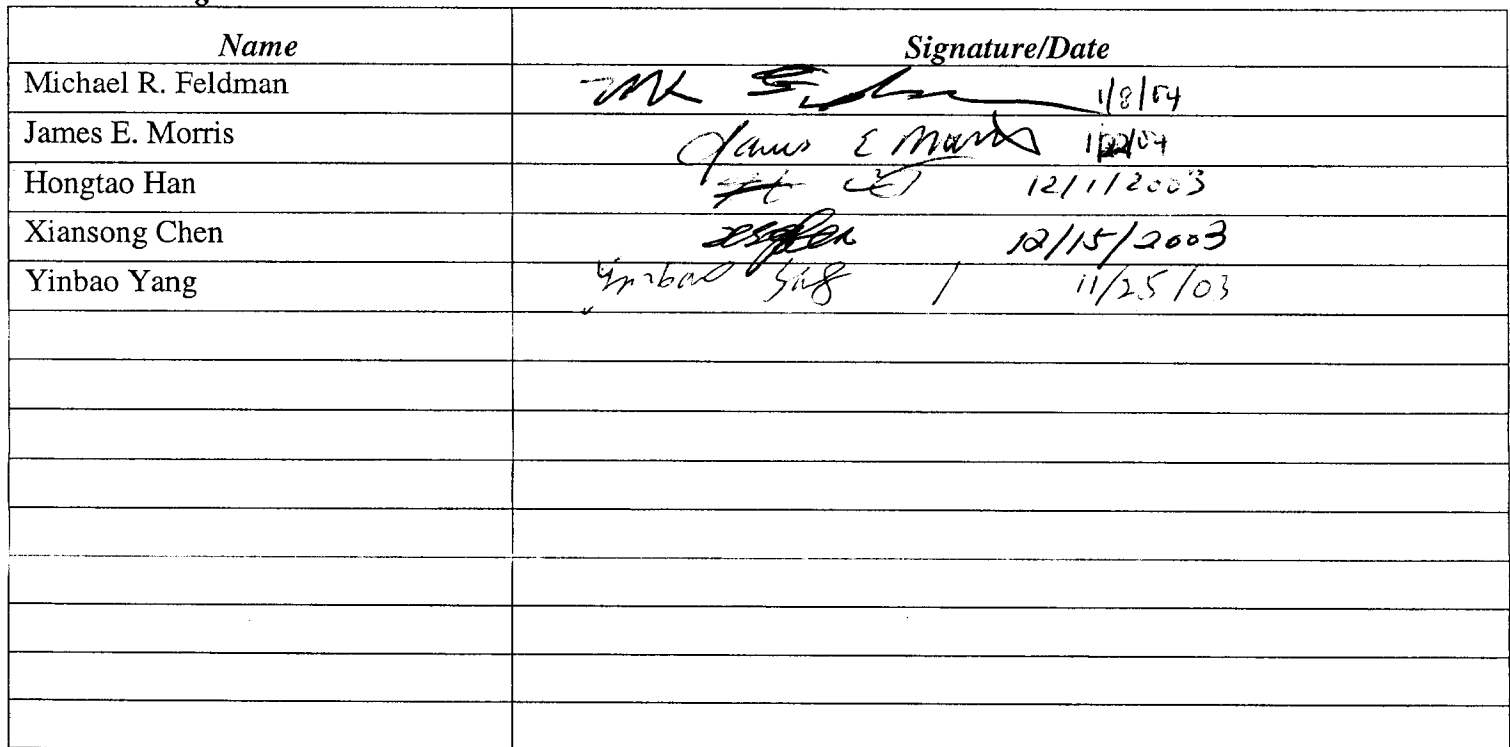 Name Signature/Date
Michael R. Feldman 1/8/04
James E. Morris James E Morris
Hongtao Han 12/1/2003
Xiansong Chen 12/15/2003
Yinbao Yang Yinbao Yang / 11/25/03